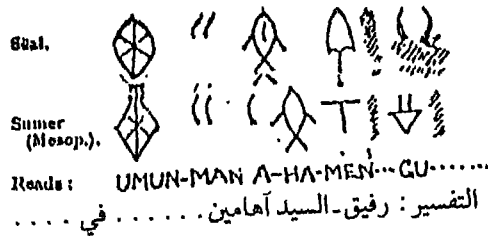 Sūal.
Sumer
(Mesop.).
Reads: UMUN-MAN A-HA-MEN...GU.......
التفسير : رفيق - السيد آهامين ...... في ....